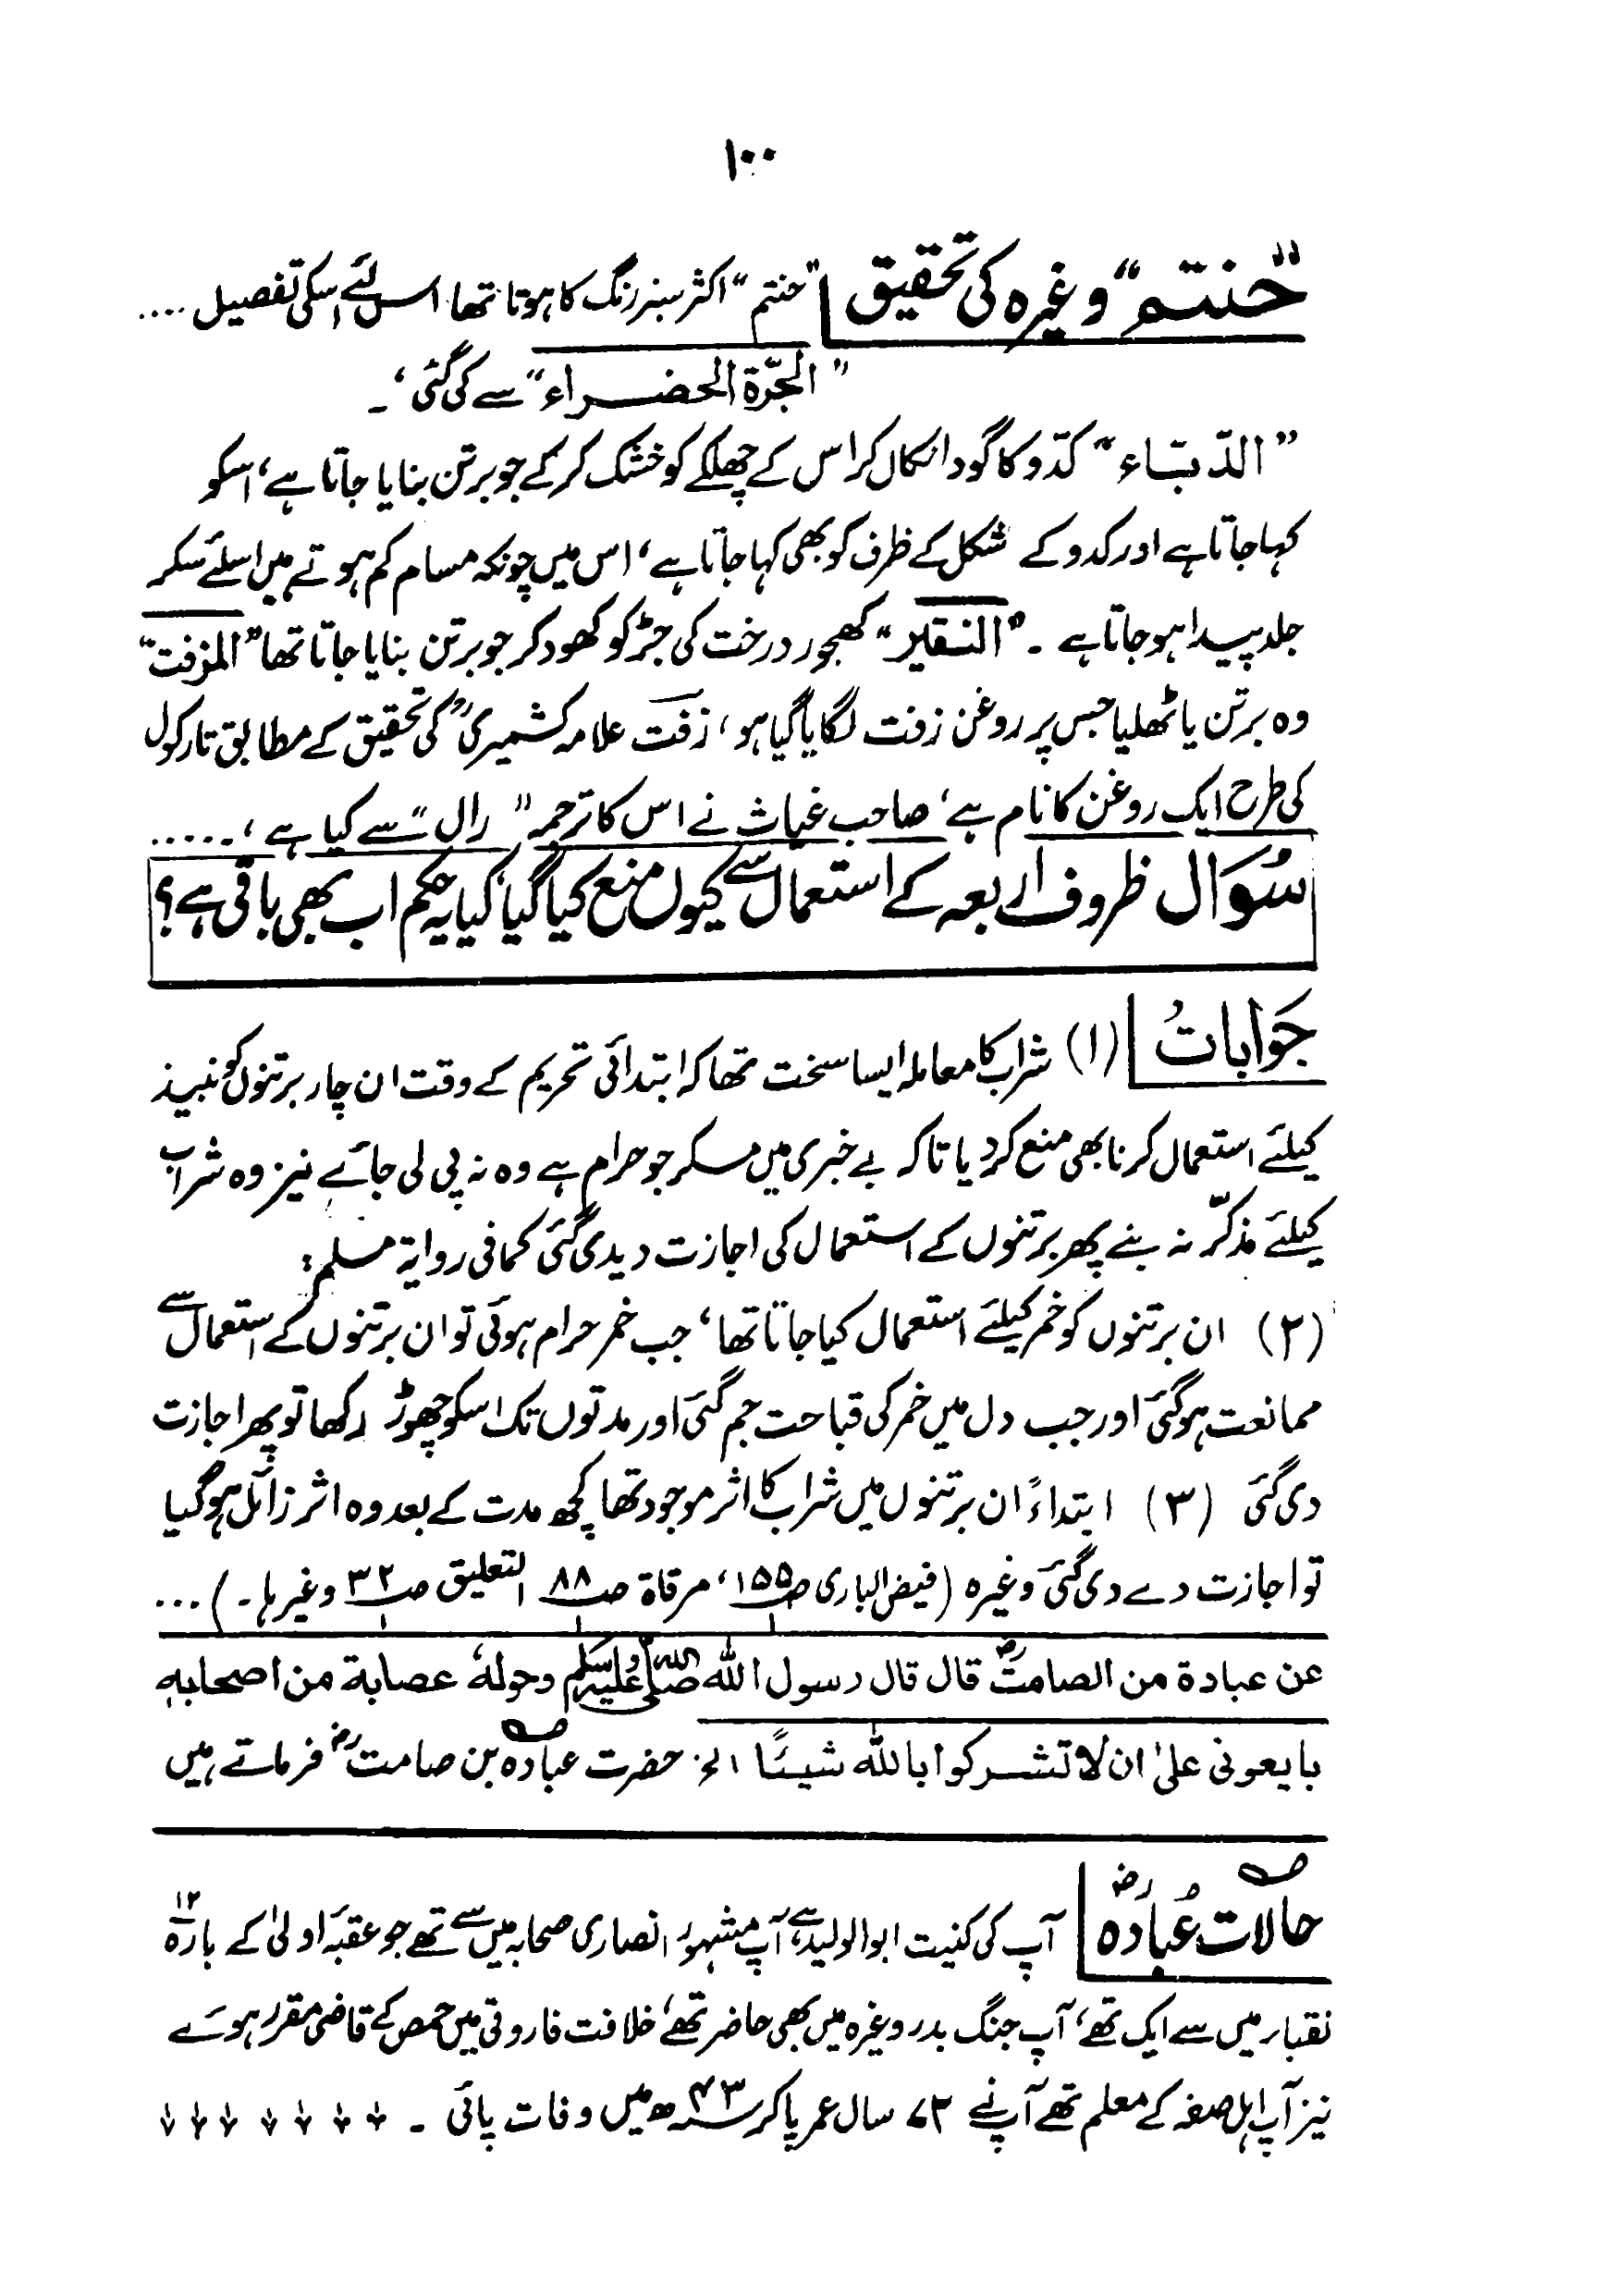 ۱۰۰
”حنتم“ وغیرہ کی تحقیق ”حنتم“ اکثر سبز رنگ کا ہوتا تھا اس لئے اسکی تفصیل ....
”الجرّة الخضراء“ سے کی گئی ،۔
”الدّبّاء“ کدّو کا گودا نکال کر اس کے چھلکے کو خشک کر کے جو برتن بنایا جاتا ہے، اسکو
کہا جاتا ہے اور کدو کے شکل کے ظرف کو بھی کہا جاتا ہے، اس میں چونکہ مسام کم ہوتے ہیں اسلئے سکر
جلد پیدا ہوجاتا ہے ۔ ”النقیر“ کھجور درخت کی جڑ کو کھود کر جو برتن بنایا جاتا تھا ”المزفت“
وہ برتن یا ٹھلیا جس پر روغن زفت لگایا گیا ہو، زفت علامہ کشمیریؒ کی تحقیق کے مطابق تارکول
کی طرح ایک روغن کا نام ہے، صاحب غیاث نے اس کا ترجمہ ”رال“ سے کیا ہے،۔....
سُوَال ظروف اربعہ کے استعمال سے کیوں منع کیا گیا، کیا یہ حکم اب بھی باقی ہے؟
جَوَابَاتُ (۱) شراب کا معاملہ ایسا سخت تھا کہ ابتدائی تحریم کے وقت ان چار برتنوں کو نبیذ
کیلئے استعمال کرنا بھی منع کر دیا تاکہ بے خبری میں مسکر جو حرام ہے وہ نہ پی لی جائے نیز وہ شراب
کیلئے مذکّر نہ بنے پھر برتنوں کے استعمال کی اجازت دیدی گئی کما فی روایة مسلم؛
(۲) ان برتنوں کو خمر کیلئے استعمال کیا جاتا تھا، جب خمر حرام ہوئی تو ان برتنوں کے استعمال سے
ممانعت ہوگئی اور جب دل میں خمر کی قباحت جم گئی اور مدتوں تک اسکو چھوڑ رکھا تو پھر اجازت
دی گئی (۳) ابتداءً ان برتنوں میں شراب کا اثر موجود تھا کچھ مدت کے بعد وہ اثر زائل ہوگیا
تو اجازت دے دی گئی وغیرہ (فیض الباری ص ۱۵۵/۱، مرقاة ص ۸۸/۱ التعلیق ص ۳۲/۱ وغیرہا۔)...
عن عبادة من الصامتؓ قال قال رسول اللّٰه ﷺ وحولهٗ عصابة من اصحابهٖ
بایعونی علیٰ ان لا تشرکوا باللّٰه شیئًا الخ حضرت عبادہ بن صامتؓ فرماتے ہیں
حالات عُبادہؓ آپ کی کنیت ابوالولید ہے، آپ مشہور انصاری صحابہ میں سے تھے جو عقبۂ اولیٰ کے بارہ ۱۲
نقباء میں سے ایک تھے، آپ جنگ بدر وغیرہ میں بھی حاضر تھے، خلافت فاروقی میں حمص کے قاضی مقرر ہوئے
نیز آپ اہل صفہ کے معلم تھے آپ نے ۷۲ سال عمر پا کر ۴۳ھ میں وفات پائی ۔